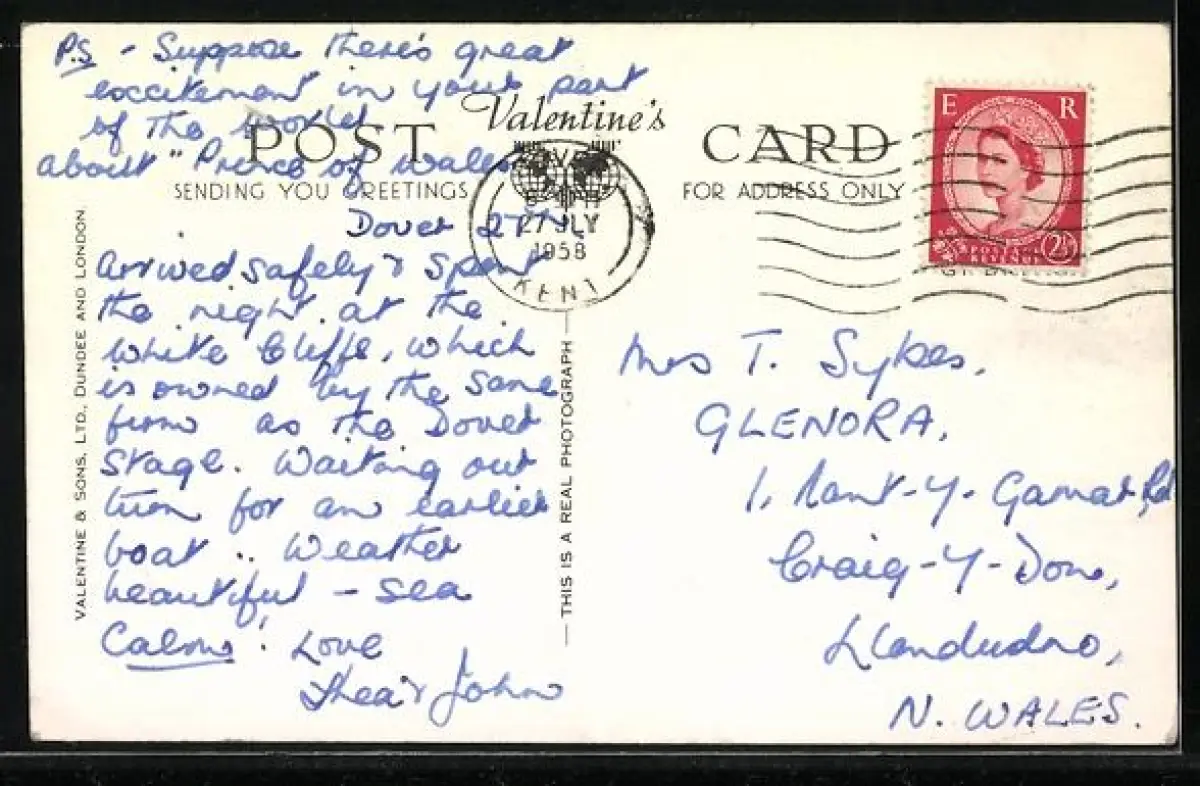 P.S - Suppose there's great
excitement in your part
of the world
about "Prince of Wales
POST
Valentine's
CARD
SENDING YOU GREETINGS
FOR ADDRESS ONLY
DOVER
27 JLY
1958
KENT
E R
POSTAGE
REVENUE
2½
Dover 27th.
Arrived safely & spent
the night at the
White Cliffs, which
is owned by the same
firm as the Dover
Stage. Waiting our
turn for an earlier
boat.. Weather
beautiful - sea
Calm! Love
Thea & John
Mrs T. Sykes.
GLENORA,
1, Nant-Y-Gamar Rd
Craig-Y-Don,
Llandudno,
N. WALES.
VALENTINE & SONS, LTD., DUNDEE AND LONDON.
— THIS IS A REAL PHOTOGRAPH —